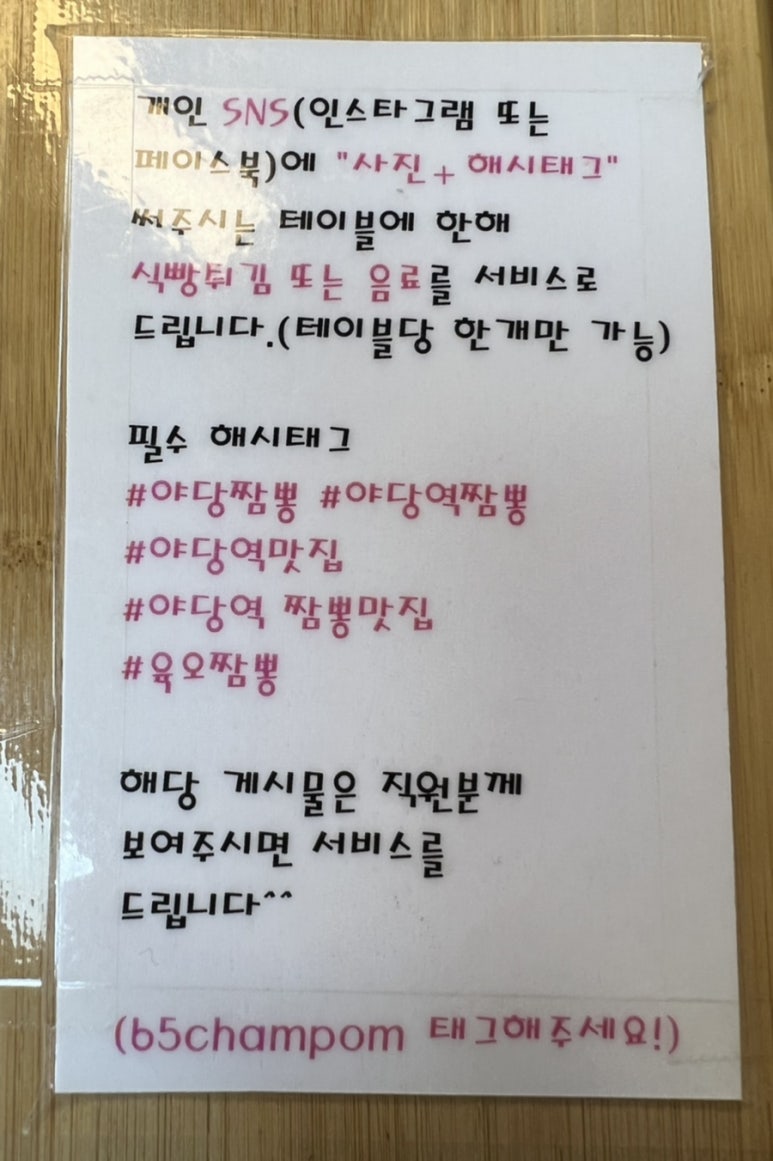 개인 SNS(인스타그램 또는
페이스북)에 "사진+해시태그"
써주시는 테이블에 한해
식빵튀김 또는 음료를 서비스로
드립니다.(테이블당 한개만 가능)
필수 해시태그
#야당짬뽕 #야당역짬뽕
#야당역맛집
#야당역 짬뽕맛집
#육오짬뽕
해당 게시물은 직원분께
보여주시면 서비스를
드립니다^^
(65champom 태그해주세요!)